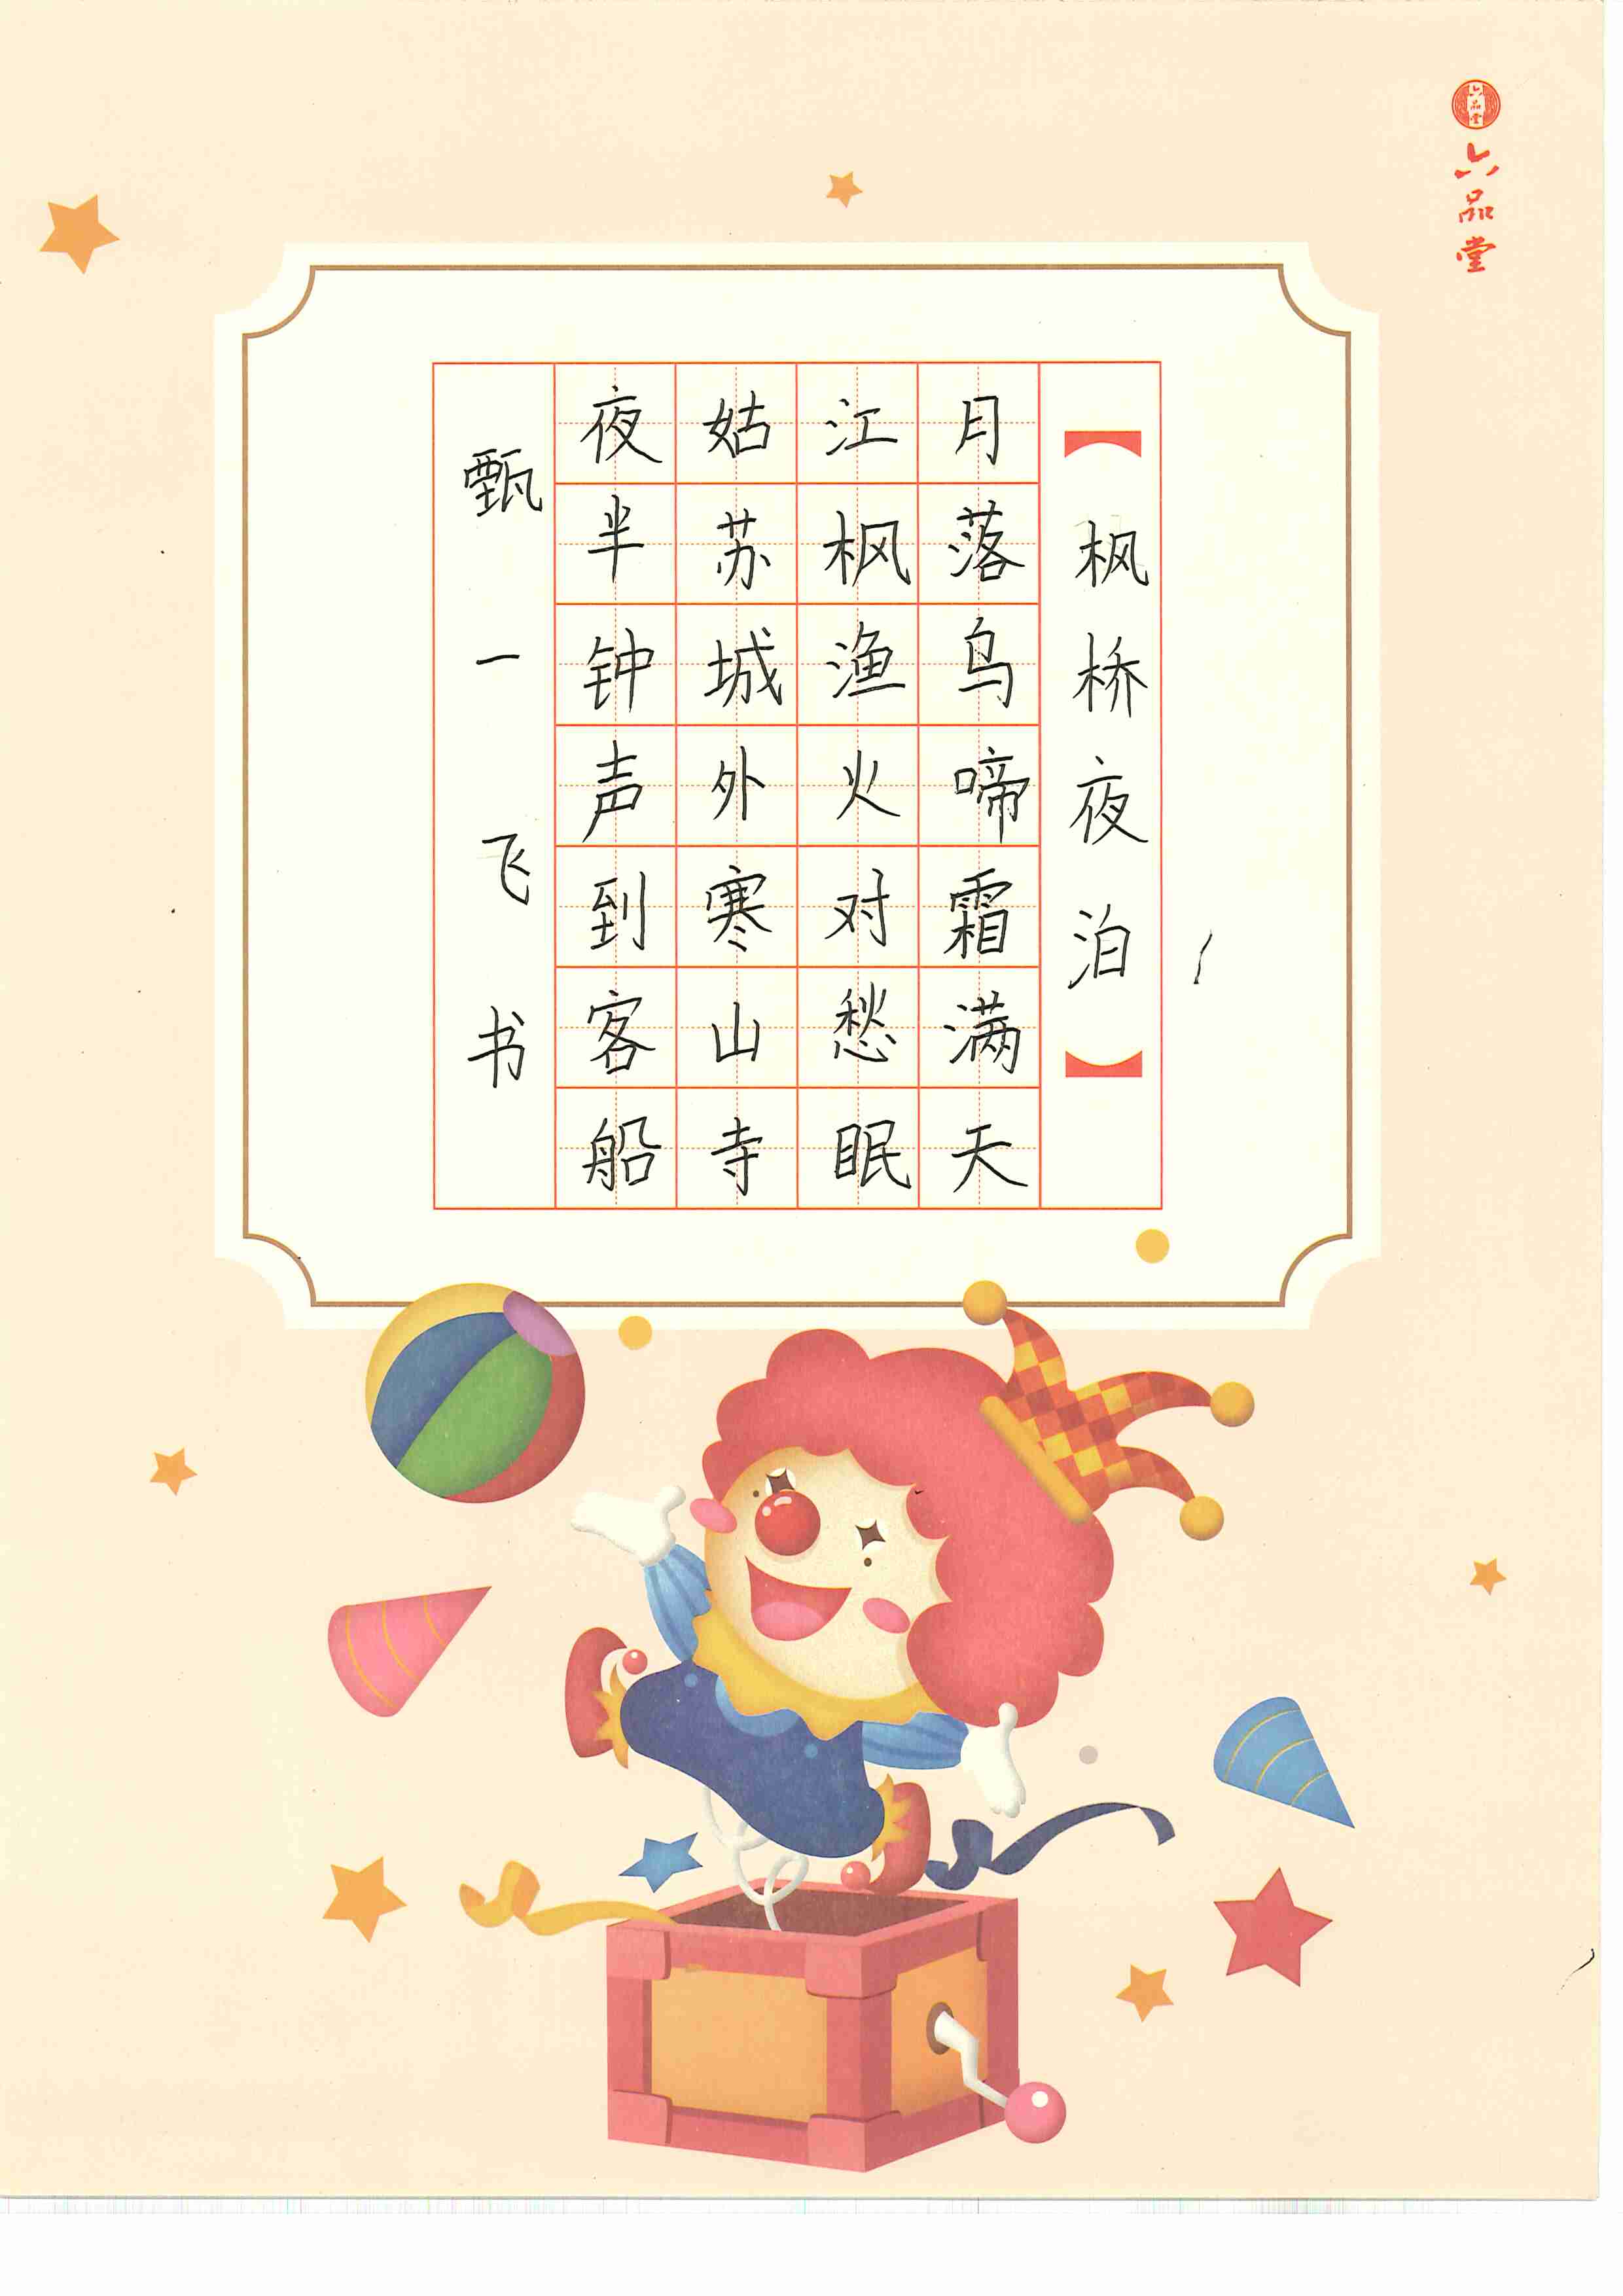 六品堂
六品堂
【枫桥夜泊】
月落乌啼霜满天
江枫渔火对愁眠
姑苏城外寒山寺
夜半钟声到客船
甄一飞书